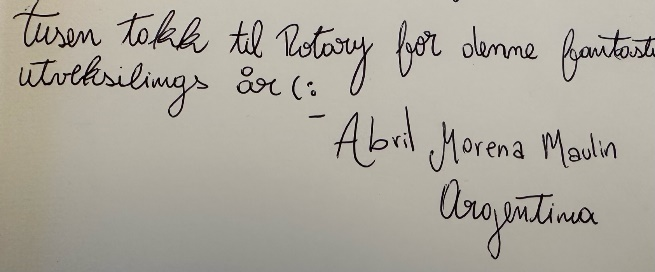 tusen takk til Rotary for denne fantasti
utveksilings år (:
- Abril Morena Maulin
Argentina